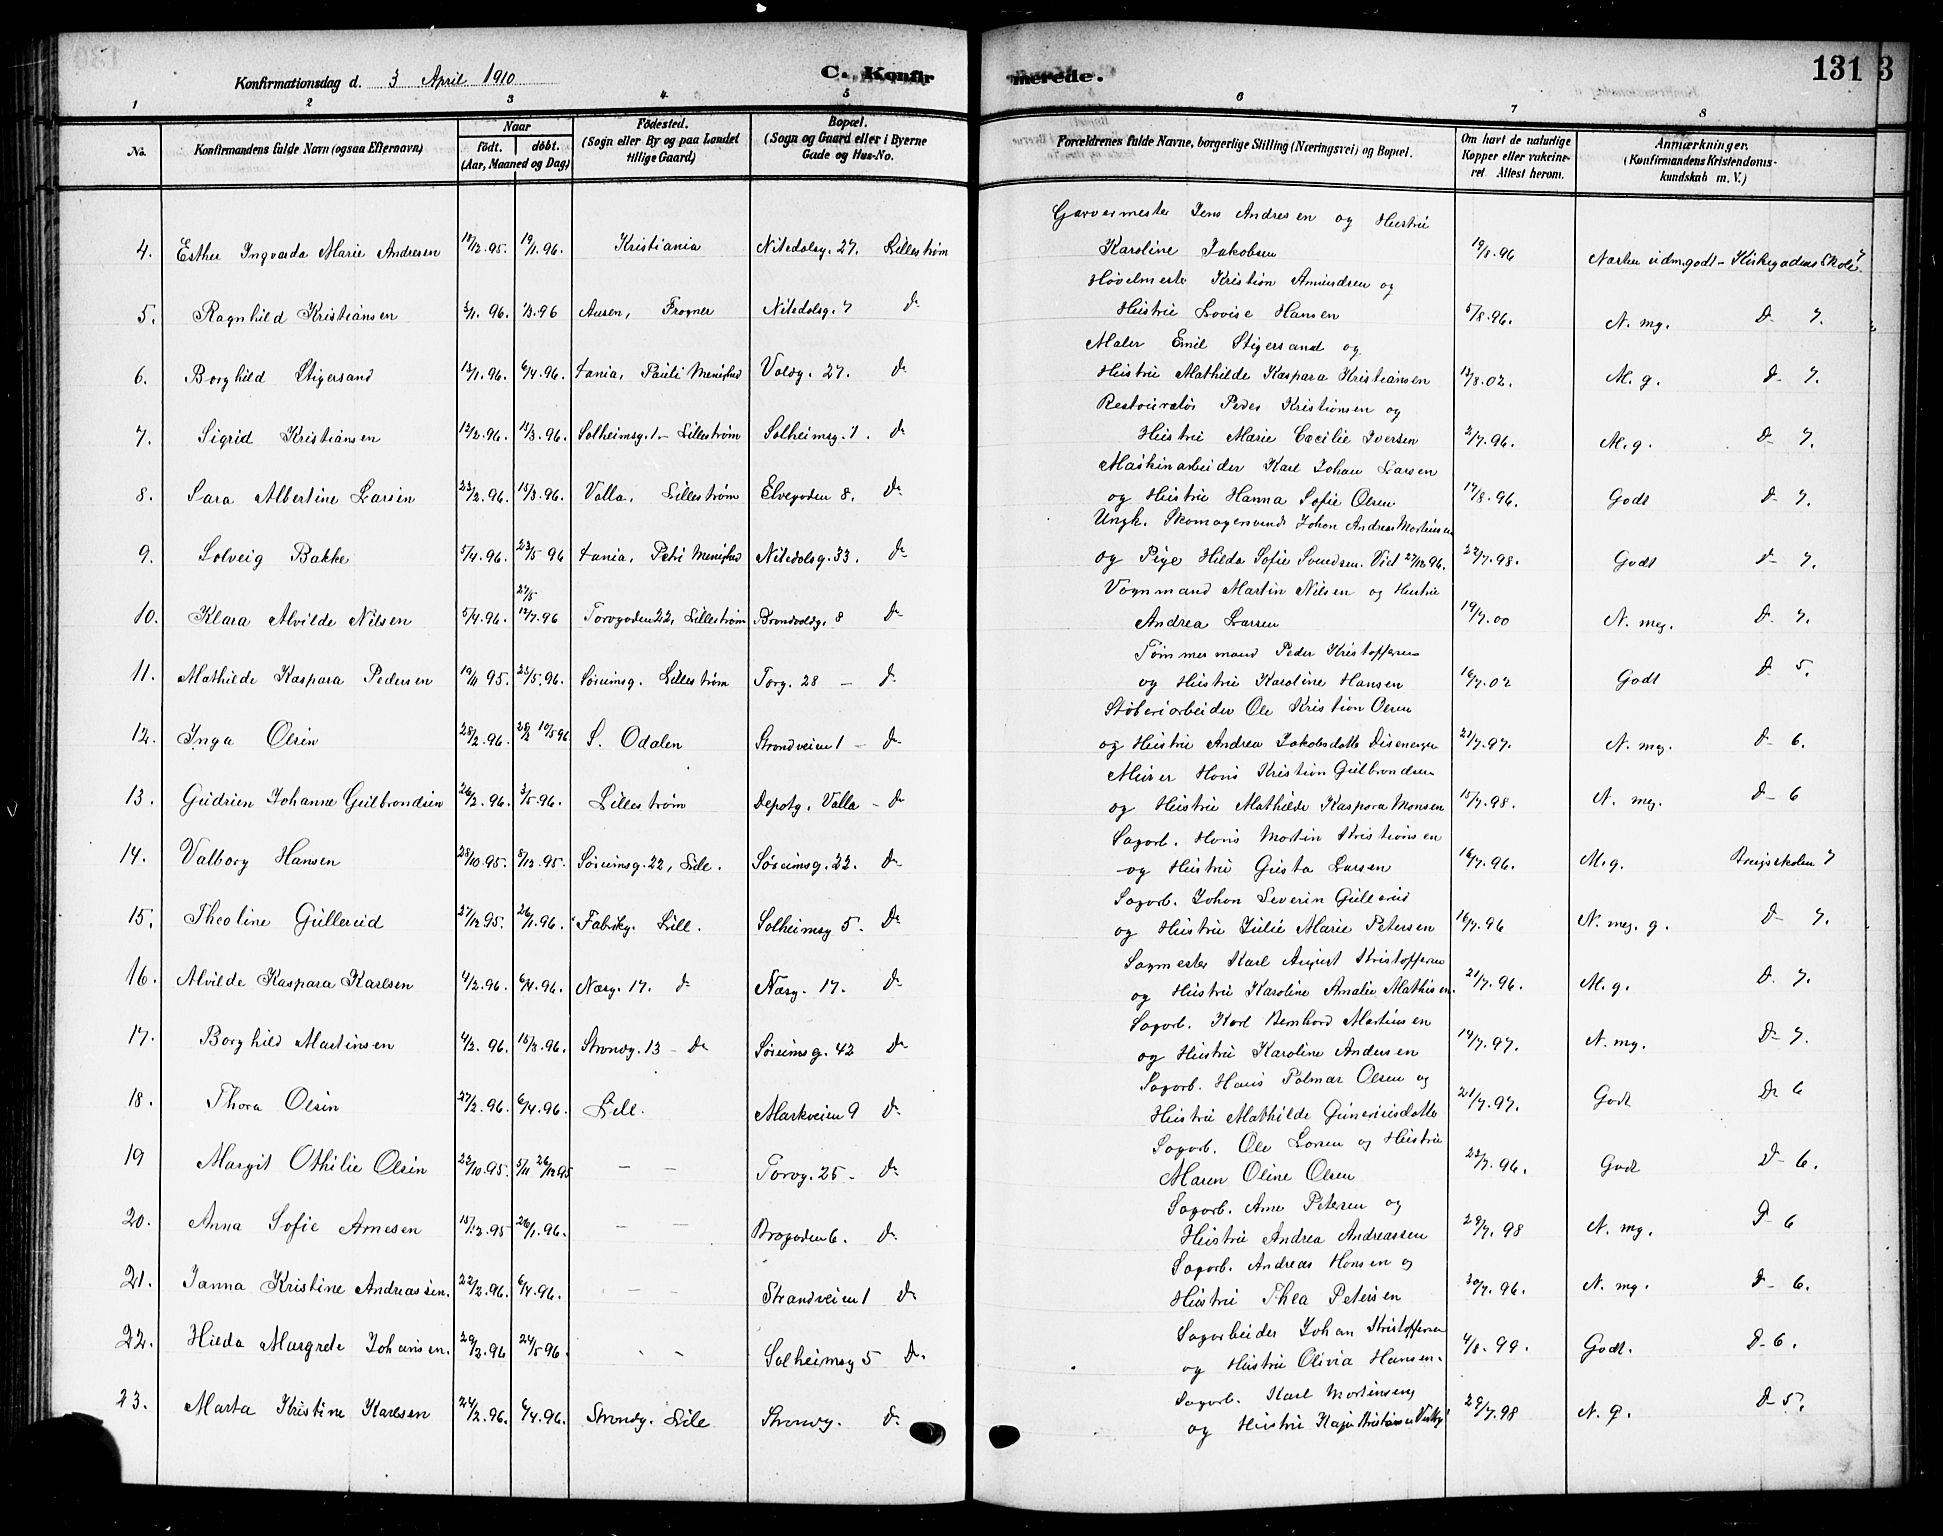 Konfirmationsdag d. 3 April 1910
C. Konfirmerede.
131
3
1 2 3 4 5 6 7 8
No. Konfirmandens fulde Navn (ogsaa Efternavn) Naar født. døbt. (Aar, Maaned og Dag) Fødested. (Sogn eller By og paa Landet tillige Gaard) Bopæl. (Sogn og Gaard eller i Byerne Gade og Hus-No. Forældrenes fulde Navne, borgerlige Stilling (Næringsvei) og Bopæl. Om havt de naturlige Kopper eller vakcineret Attest herom. Anmærkninger. (Konfirmandens Kristendomskundskab m. V.)
Garvermester Jens Andresen og Hustru
4. Esther Ingvarda Marie Andresen 95. 19/1.96. Kristiania Nitedalsg. 27. Lillestrøm Karoline Jakobsen 19/8.96 Næsten udm. godt - Kirkegadens Skole 7.
Høvelmester Kristian Amundsen og
5. Ragnhild Kristiansen 3/1.96. 1/3.96 Ausen, Frogner Nitedalsg. 7 Do Hustru Lovise Hansen 5/8.96. N. mg. D- 7.
Maler Emil Stigersand og
6. Borghild Stigersand 13/1.96. 6/4.96. tania, Pauli Menighed Voldg. 27. do Hustru Mathilde Kaspara Kristiansen 13/8.02. M. g. D- 7.
Restauratør Peder Kristiansen og
7. Sigrid Kristiansen 12/2.96. 15/3.96. Solheimsg. 1. - Lillestrøm Solheimsg. 1. do Hustru Marie Cæcilie Iversen 2/7.96. M. g. D- 7.
Maskinarbeider Karl Johan Larsen
8. Sara Albertine Larsen 23/2.96. 15/3.96. Valla, Lillestrøm Elvegaden 8. do og Hustru Hanna Sofie Olsen 17/8.96. Godt D- 7.
Ungk. Skomagersvend Johan Andreas Martinsen
9. Solveig Bakke 5/4.96. 23/5 96 tania, Petri Menighed Nitedalsg. 33. do og Pige Hilda Sofie Svendsen. Viet 27/12 96. 22/7.98. Godt D- 7.
Vognmand Martin Nilsen og Hustru
10. Klara Alvilde Nilsen 5/4.96. 27/5 12/7.96 Torvgaden 22, Lillestrøm Brondvoldg. 8 do Andrea Larsen 19/7.00 N. meg. D- 7.
Tømmermand Peder Kristoffersen
11. Mathilde Kaspara Pedersen 19/11 95. 25/5.96. Sørumsg. Lillestrøm Torg. 28 - do og Hustru Karoline Hansen 16/7.02 Godt D- 5.
Støberiarbeider Ole Kristian Olsen
12. Inga Olsen 28/2.96. 28/2 10/5 96 S. Odalen Strandveien 1 - do og Hustru Andrea Jakobsdatter 21/7.97. N. mg. D- 6.
Murer Hans Kristian Gulbrandsen
13. Gudrun Johanne Gulbrandsen 26/2.96. 3/5.96. Lillestrøm Depotg. Valla - do og Hustru Mathilde Kaspara Monsen 15/7.98. N. meg. D- 6
Sagarb. Hans Martin Kristiansen
14. Valborg Hansen 28/10.95. 8/12.95. Sørumsg. 22, Lille. Sørumsg. 22. do og Hustru Gusta Larsen 16/7.96. M. g. 7
Sagarb. Johan Severin Gullerud
15. Theoline Gullerud 27/12 95. 26/1.96. Fabrikg. Lill. Solheimsg 5. do og Hustru Julie Marie Petersen 16/7.96 N. meg. g. D- 7.
Sagmester Karl August Kristoffersen
16. Alvilde Kaspara Karlsen 4/2.96. 6/4.96. Næsg. 17. do Næsg. 17. do og Hustru Karoline Amalie Mathisen. 21/7.96. M. g. D. 7.
Sagarb. Karl Bernhard Martinsen
17. Borghild Martinsen 4/2.96. 15/3.96. Strandg. 13 - do Sørumsg. 42 do og Hustru Karoline Andersen 14/7.97. N. mg. D- 7.
Sagarb. Hans Palmar Olsen og
18. Thora Olsen 27/2.96. 6/4.96. Lill. Markveien 9 do Hustru Mathilde Gunneriusdatter 21/7.97. Godt Do 6
Sagarb. Ole Larsen og Hustru
19 Margit Othilie Olsen 22/10.95. 3/11 26/12 95 - - Torvg. 25 - do Maren Oline Olsen 22/7.96. Godt D- 6.
Sagarb. Arne Petersen og
20. Anna Sofie Arnesen 15/12.95 26/1.96. - - Brogaden 6. do Hustru Andrea Andreassen 29/7.98 N. mg. D- 6
Sagarb. Andreas Hansen og
21. Janna Kristine Andreassen. 22/2.96. 6/4.96. - - Strandveien 1 do Hustru Thea Petersen 30/7.96. N. mg. D- 6.
Sagarbeider Johan Kristoffersen
22. Hilda Margrete Johansen. 29/2.96 24/5 96. - - Solheimsg 5 do og Hustru Olivia Hansen. 4/8.99. Godt. D- 6.
Sagarb. Karl Mortensen
23. Marta Kristine Karlsen 24/2.96. 6/4.96. Strandg. Lille Strandg. do og Hustru Kaja 29/7.98 N. g. D- 5.